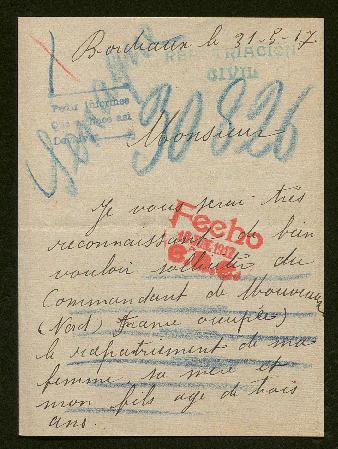 Bordeaux le 31-5-17
REPATRIACION
CIVIL
30826
Monsieur
Je vous serai très
reconnaissant de bien
vouloir solliciter du
Commandant de Mouveaux
(Nord France occupée)
le rapatriement de ma
femme, sa mère et
mon fils agé de trois
ans.
Fecho
1917